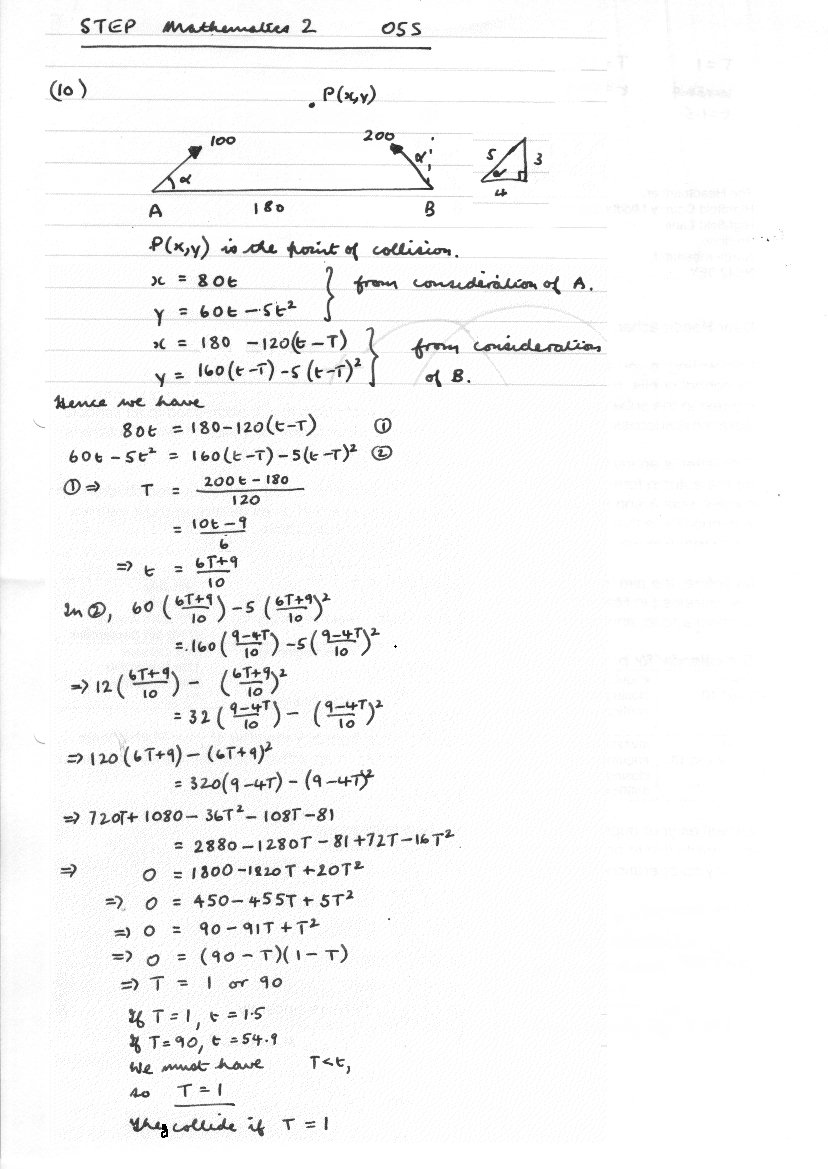 STEP Mathematics 2 05S
(10)
P(x,y)
100
200
α
α
5
3
α
4
A
180
B
P(x,y) is the point of collision.
x = 80t
y = 60t - 5t²
} from consideration of A.
x = 180 - 120(t-T)
y = 160(t-T) - 5(t-T)²
} from consideration
of B.
Hence we have
80t = 180-120(t-T) ①
60t-5t² = 160(t-T)-5(t-T)² ②
①⇒ T = (200t-180)/120
= (10t-9)/6
⇒ t = (6T+9)/10
In ②, 60((6T+9)/10) - 5((6T+9)/10)²
= 160((9-4T)/10) - 5((9-4T)/10)²
⇒ 12((6T+9)/10) - ((6T+9)/10)²
= 32((9-4T)/10) - ((9-4T)/10)²
⇒ 120(6T+9) - (6T+9)²
= 320(9-4T) - (9-4T)²
⇒ 720T + 1080 - 36T² - 108T - 81
= 2880 - 1280T - 81 + 72T - 16T²
⇒ 0 = 1800 - 1820T + 20T²
⇒ 0 = 450 - 455T + 5T²
⇒ 0 = 90 - 91T + T²
⇒ 0 = (90 - T)(1 - T)
⇒ T = 1 or 90
If T = 1, t = 1.5
If T = 90, t = 54.9
We must have T<t,
so T = 1
They collide if T = 1